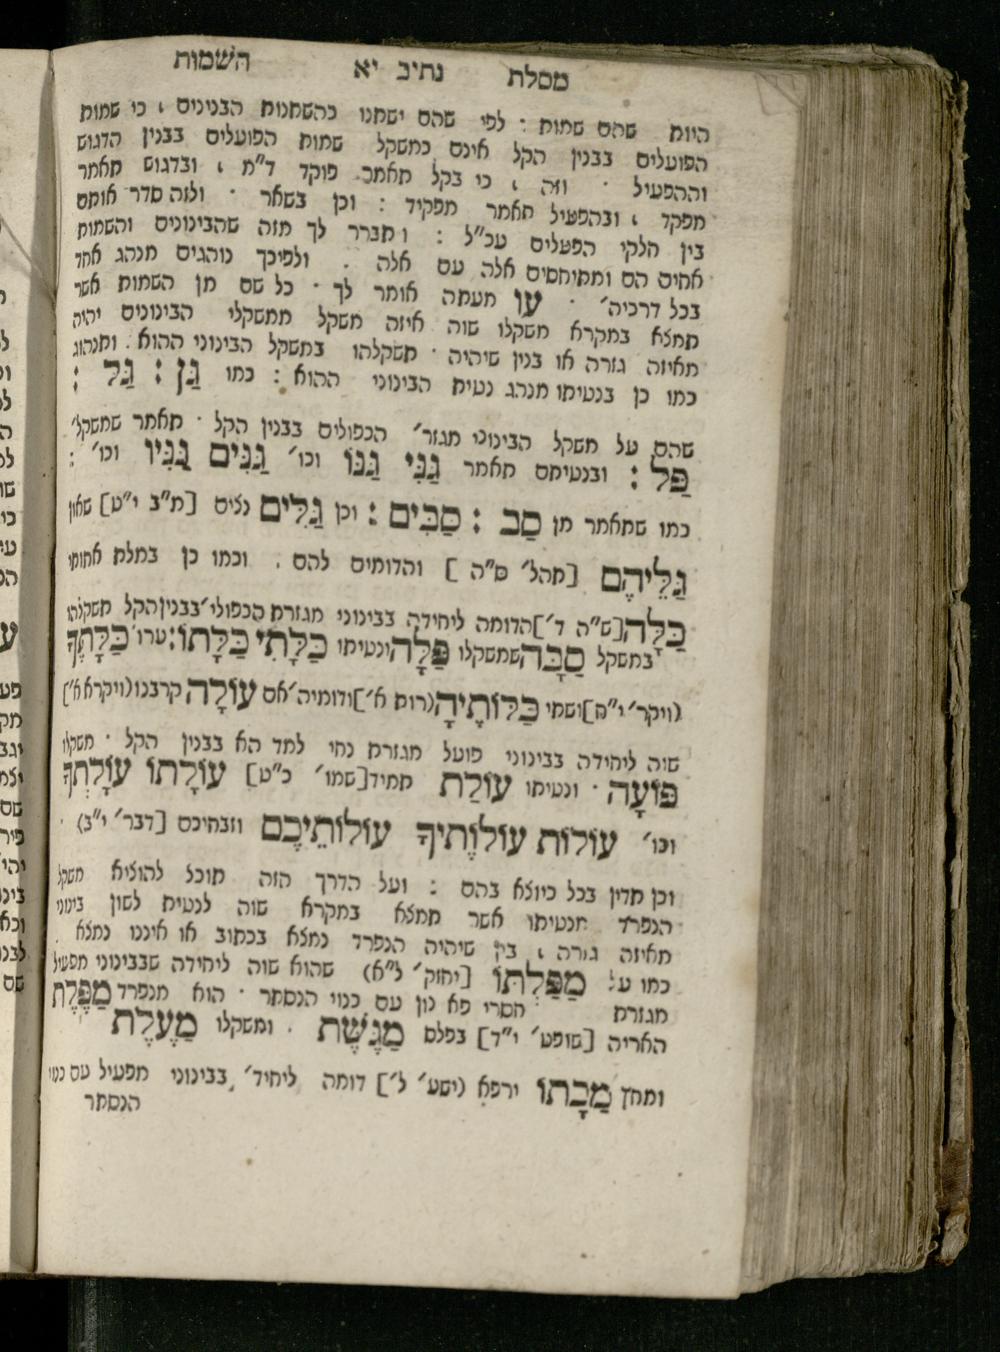 מסלת נתיב יא השמות
היות שהם שמות : לפי שהם ישתנו כהשתנות הבנינים , כי שמות
הפועלים בבנין הקל אינם כמשקל שמות הפועלים בבנין הדגוש
וההפעיל · וזה , כי בקל תאמר פוקד ד"מ , ובדגוש תאמר
מפקד , ובהפעיל תאמר מפקיד : וכן בשאר · ולזה סדר אותם
בין חלקי הפעלים עכ"ל : ותברר לך מזה שהבינונים והשמות
אחים הם ומתיחסים אלה עם אלה . ולפיכך נוהגים מנהג אחד
בכל דרכיה' · עו מעתה אומר לך · כל שם מן השמות אשר
תמצא במקרא משקלו שוה איזה משקל ממשקלי הבינונים יהיה
מאיזה גזרה או בנין שיהיה · תשקלהו במשקל הבינוני ההוא . ותנהוג
כמו כן בנטיתו מנהג נטית הבינוני ההוא : כמו גַּן : גַּל :
שהם על משקל הבינוני מגזר' הכפולים בבנין הקל · תאמר שמשקל'
פַּל : ובנטיתם תאמר גַּנִּי גַּנּוֹ וכו' גַּנִּים גַּנָּיו וכו' :
כמו שתאמר מן סַב : סַבִּים : וכן גַּלִּים נצים [מ"ב י"ט] שאון
גַּלֵּיהֶם [תהל' ס"ה ] והדומים להם . וכמו כן במלת אחותי
כַּלָּה[ש"ה ד']הדומה ליחידה בבינוני מגזרת הכפולי'בבנין הקל תשקלהו
במשקל סַבָּה שמשקלו פַּלָּה ונטיתו כַּלָּתִי כַּלָּתוֹ:ערו' כַּלָּתְךָ
(ויקר' י"ח]ושתי כַּלּוֹתֶיהָ(רות א']ודומיה'אם עוֹלָה קרבנו(ויקרא א']
שוה ליחידה בבינוני פועל מגזרת נחי למד הא בבנין הקל · משקלו
פּוֹעָה · ונטיתו עוֹלַת תמיד[שמו' כ"ט] עוֹלָתוֹ עוֹלָתְךָ
וכו' עוֹלוֹת עוֹלוֹתֶיךָ עוֹלוֹתֵיכֶם וזבחיכם [דבר' י"ב) ·
וכן תדין בכל כיוצא בהם : ועל הדרך הזה תוכל להוציא משקל
הנפרד מנטיתו אשר תמצא במקרא שוה לנטית לשון בינוני
מאיזה גזרה , בין שיהיה הנפרד נמצא בכתוב או איננו נמצא .
כמו על מַפַּלְתּוֹ [יחזק' ל"א) שהוא שוה ליחידה שבבינוני מפעיל
מגזרת חסרי פא נון עם כנוי הנסתר · הוא מנפרד מַפֶּלֶת
האריה [שופט' י"ד] בפלס מַגֶּשֶׁת . ומשקלו מַעֶלֶת
ומחץ מַכָּתוֹ ירפא (ישע' ל'] דומה ליחיד' בבינוני מפעיל עם כנוי
הנסתר